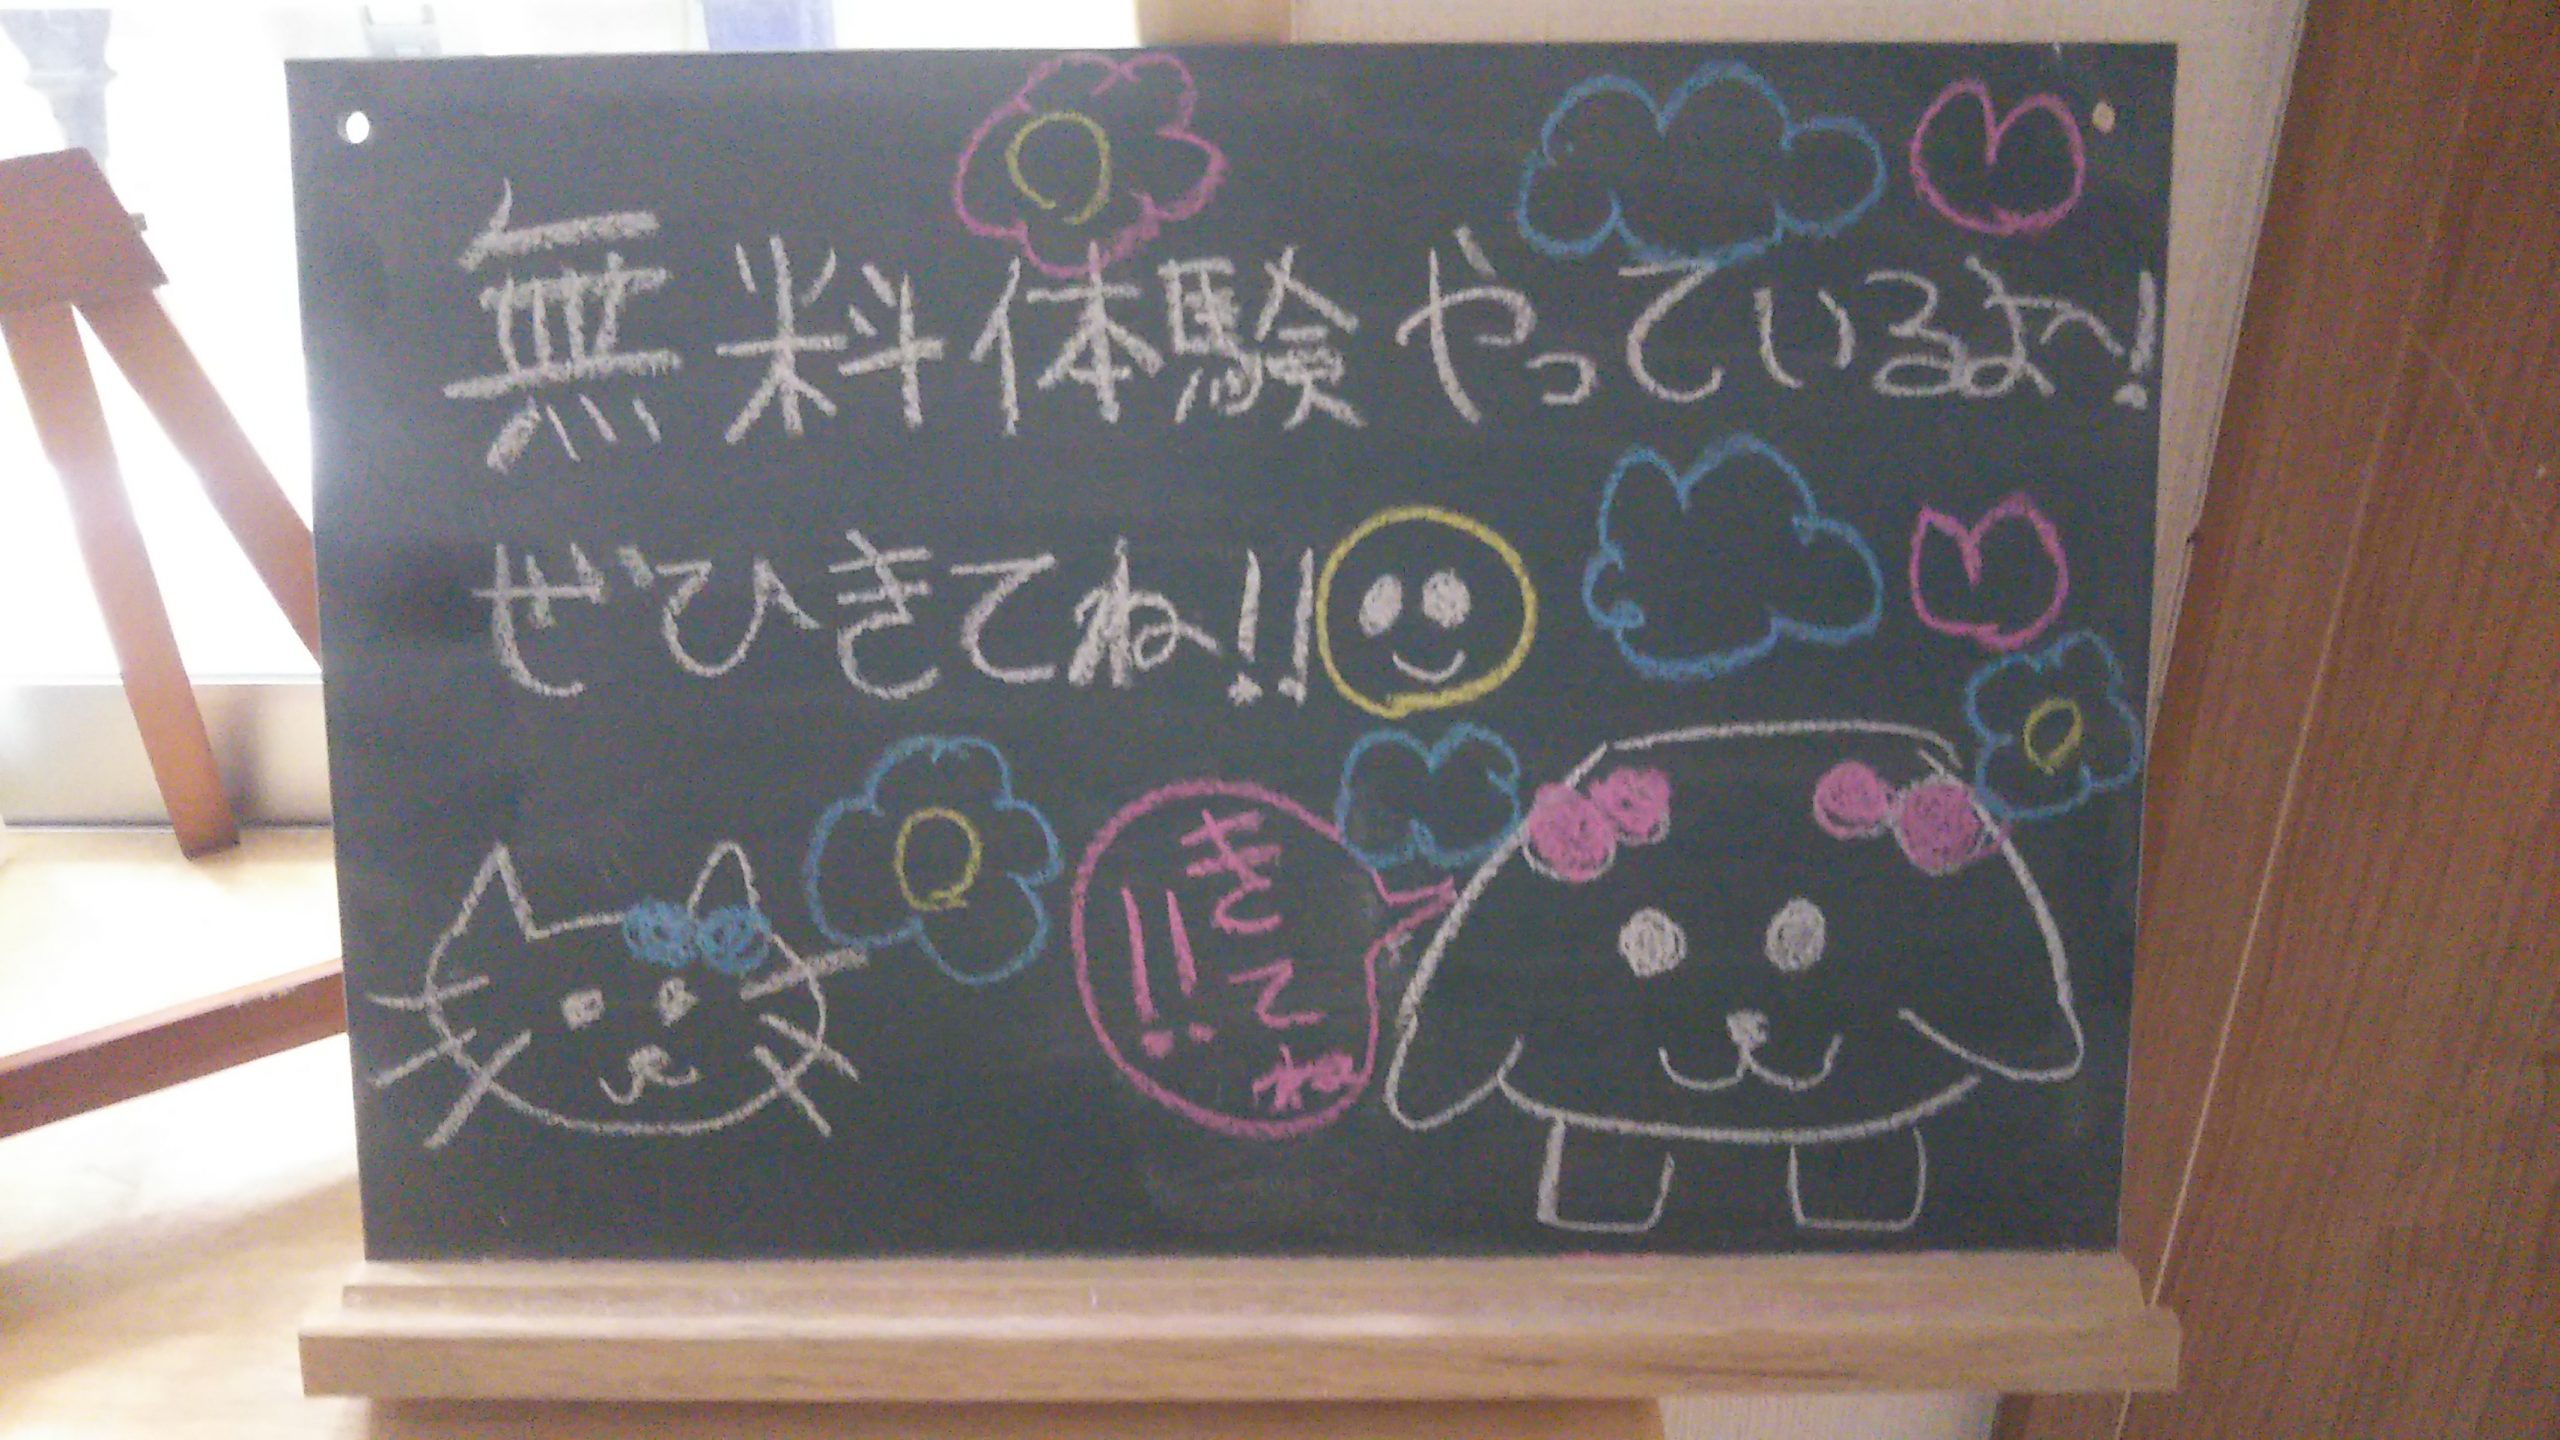 無料体験やっているよ〜!
ぜひきてね!!
きてね
!!